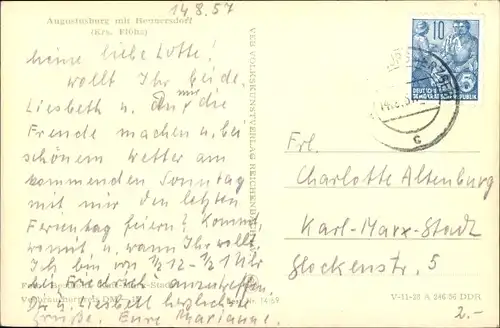 14.8.57
Augustusburg mit Hennersdorf
(Krs. Flöha)
Meine liebe Lotte!
Wollt Ihr beide,
Liesbeth u. Du, mir die
Freude machen u. bei
schönem Wetter am
kommenden Sonntag
mit mir den letzten
Ferientag feiern? Kommt,
womit u. wann Ihr wollt.
Ich bin von ½12 - ½1 Uhr
bei Friedrich anzutreffen.
Dir u. Liesbeth herzliche
Grüße. Eure Marianne.
VEB VOLKSKUNSTVERLAG REICHENBACH
10
DEUTSCHE
DEMOKRATISCHE REPUBLIK
5
14.8.57
c
Frl.
Charlotte Altenburg
Karl-Marx-Stadt
Glockenstr. 5
V-11-28 A 246-56 DDR
2.-